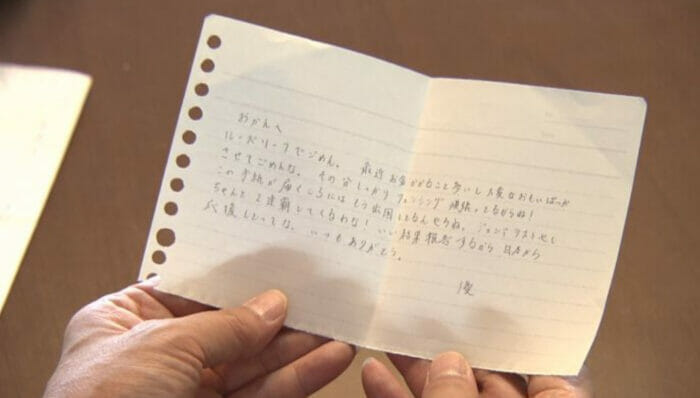 おかんへ
ルーズリーフでごめん。 最近お金がかかること多いし大変なおもいばっか
させてごめんな。その分しっかりフェンシング頑張ってるからね！
この手紙が届くころにはもう出国しとるんやろね。ジュニアワールドも
ちゃんと2連覇してくるわな！いい結果報告するから 日本から
応援しとってな。いつもありがとう。
優